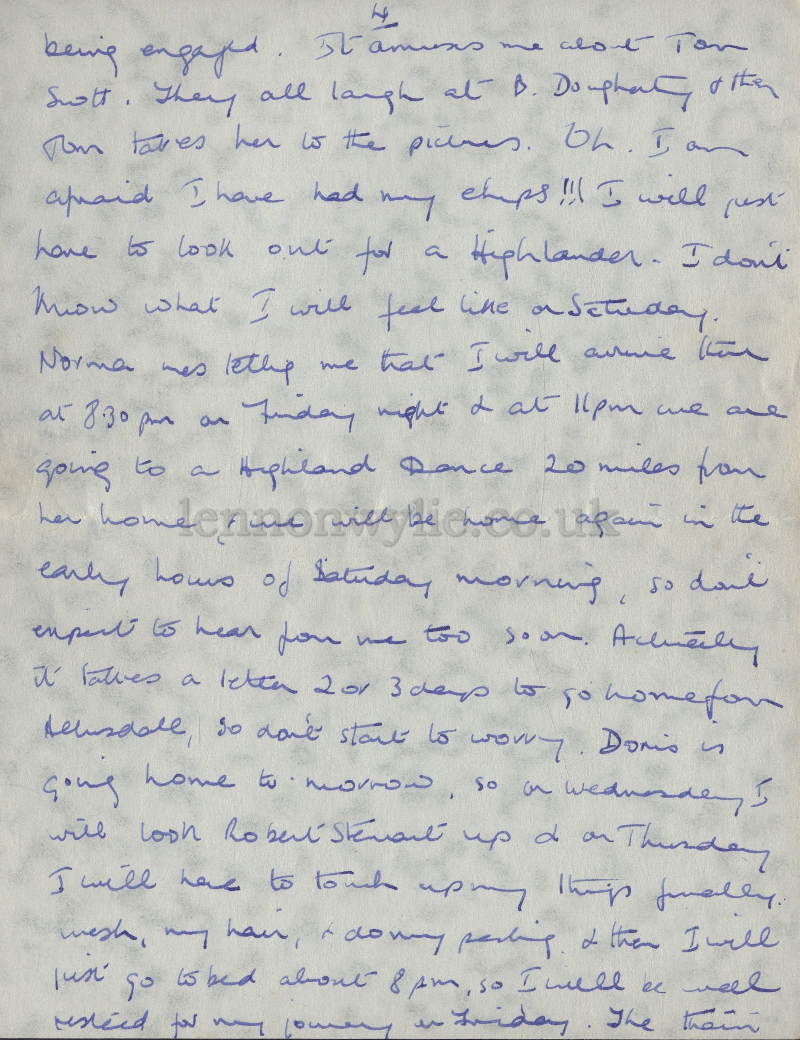 4
being engaged. It amuses me about Tom
Scott. They all laugh at B. Dougharty & then
Tom takes her to the pictures. Oh. I am
afraid I have had my chips!!! I will just
have to look out for a Highlander. I don't
know what I will feel like on Saturday.
Norma was telling me that I will arrive there
at 8.30 pm on Friday night & at 11pm we are
going to a Highland Dance 20 miles from
her home & we will be home again in the
lennonwylie.co.uk
early hours of Saturday morning, so don't
expect to hear from me too soon. Actually
it takes a letter 2 or 3 days to go home from
so don't start to worry. Doris is
going home to-morrow, so on Wednesday I
will look Robert Stewart up & on Thursday
I will have to touch up my things finally.
wash, my hair, & do my packing & then I will
just go to bed about 8 pm, so I will be well
rested for my journey on Friday. The train